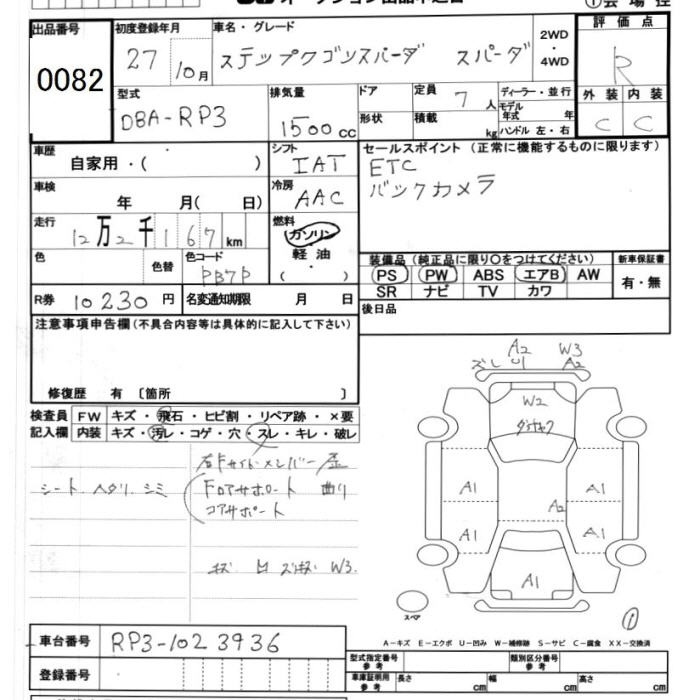 ① 会場控
出品番号 初度登録年月 車名・グレード 2WD ・ 4WD 評価点
0082 27 10月 ステップワゴンスパーダ スパーダ R
型式 排気量 ドア 定員 7人 ディーラー・並行 外装 内装
DBA-RP3 1500cc 形状 積載 kg モデル年式 年 ハンドル 左・右 C C
車歴 自家用・( ) シフト IAT セールスポイント (正常に機能するものに限ります)
ETC
バックカメラ
車検 年 月( 日) 冷房 AAC
走行 12万2千167km 燃料 ガソリン
軽油
・
( )
色 色替 色コード PB7P
装備品 (純正品に限り○をつけてください) 新車保証書
PS PW ABS エアB AW 有・無
SR ナビ TV カワ
R券 10230円 名変通知期限 月 日 後日品
注意事項申告欄(不具合内容等は具体的に記入して下さい)
修復歴 有 〔箇所 〕
検査員 FW キズ・飛石・ヒビ割・リペア跡・×要
記入欄 内装 キズ・汚レ・コゲ・穴・スレ・キレ・破レ
シート ヘタリ シミ
右Fサイドメンバー 歪
Fロアサポート 曲り
コアサポート
W3.
A2 W3
ズレ A2
W2
A1 A1
A2
A1 A1
A1
スペア ①
A-キズ E-エクボ U-凹み W-補修跡 S-サビ C-腐食 XX-交換済
車台番号 RP3-1023936
型式指定番号 参考 類別区分番号 参考
登録番号 車庫証明用 参考 長さ cm 幅 cm 高さ cm